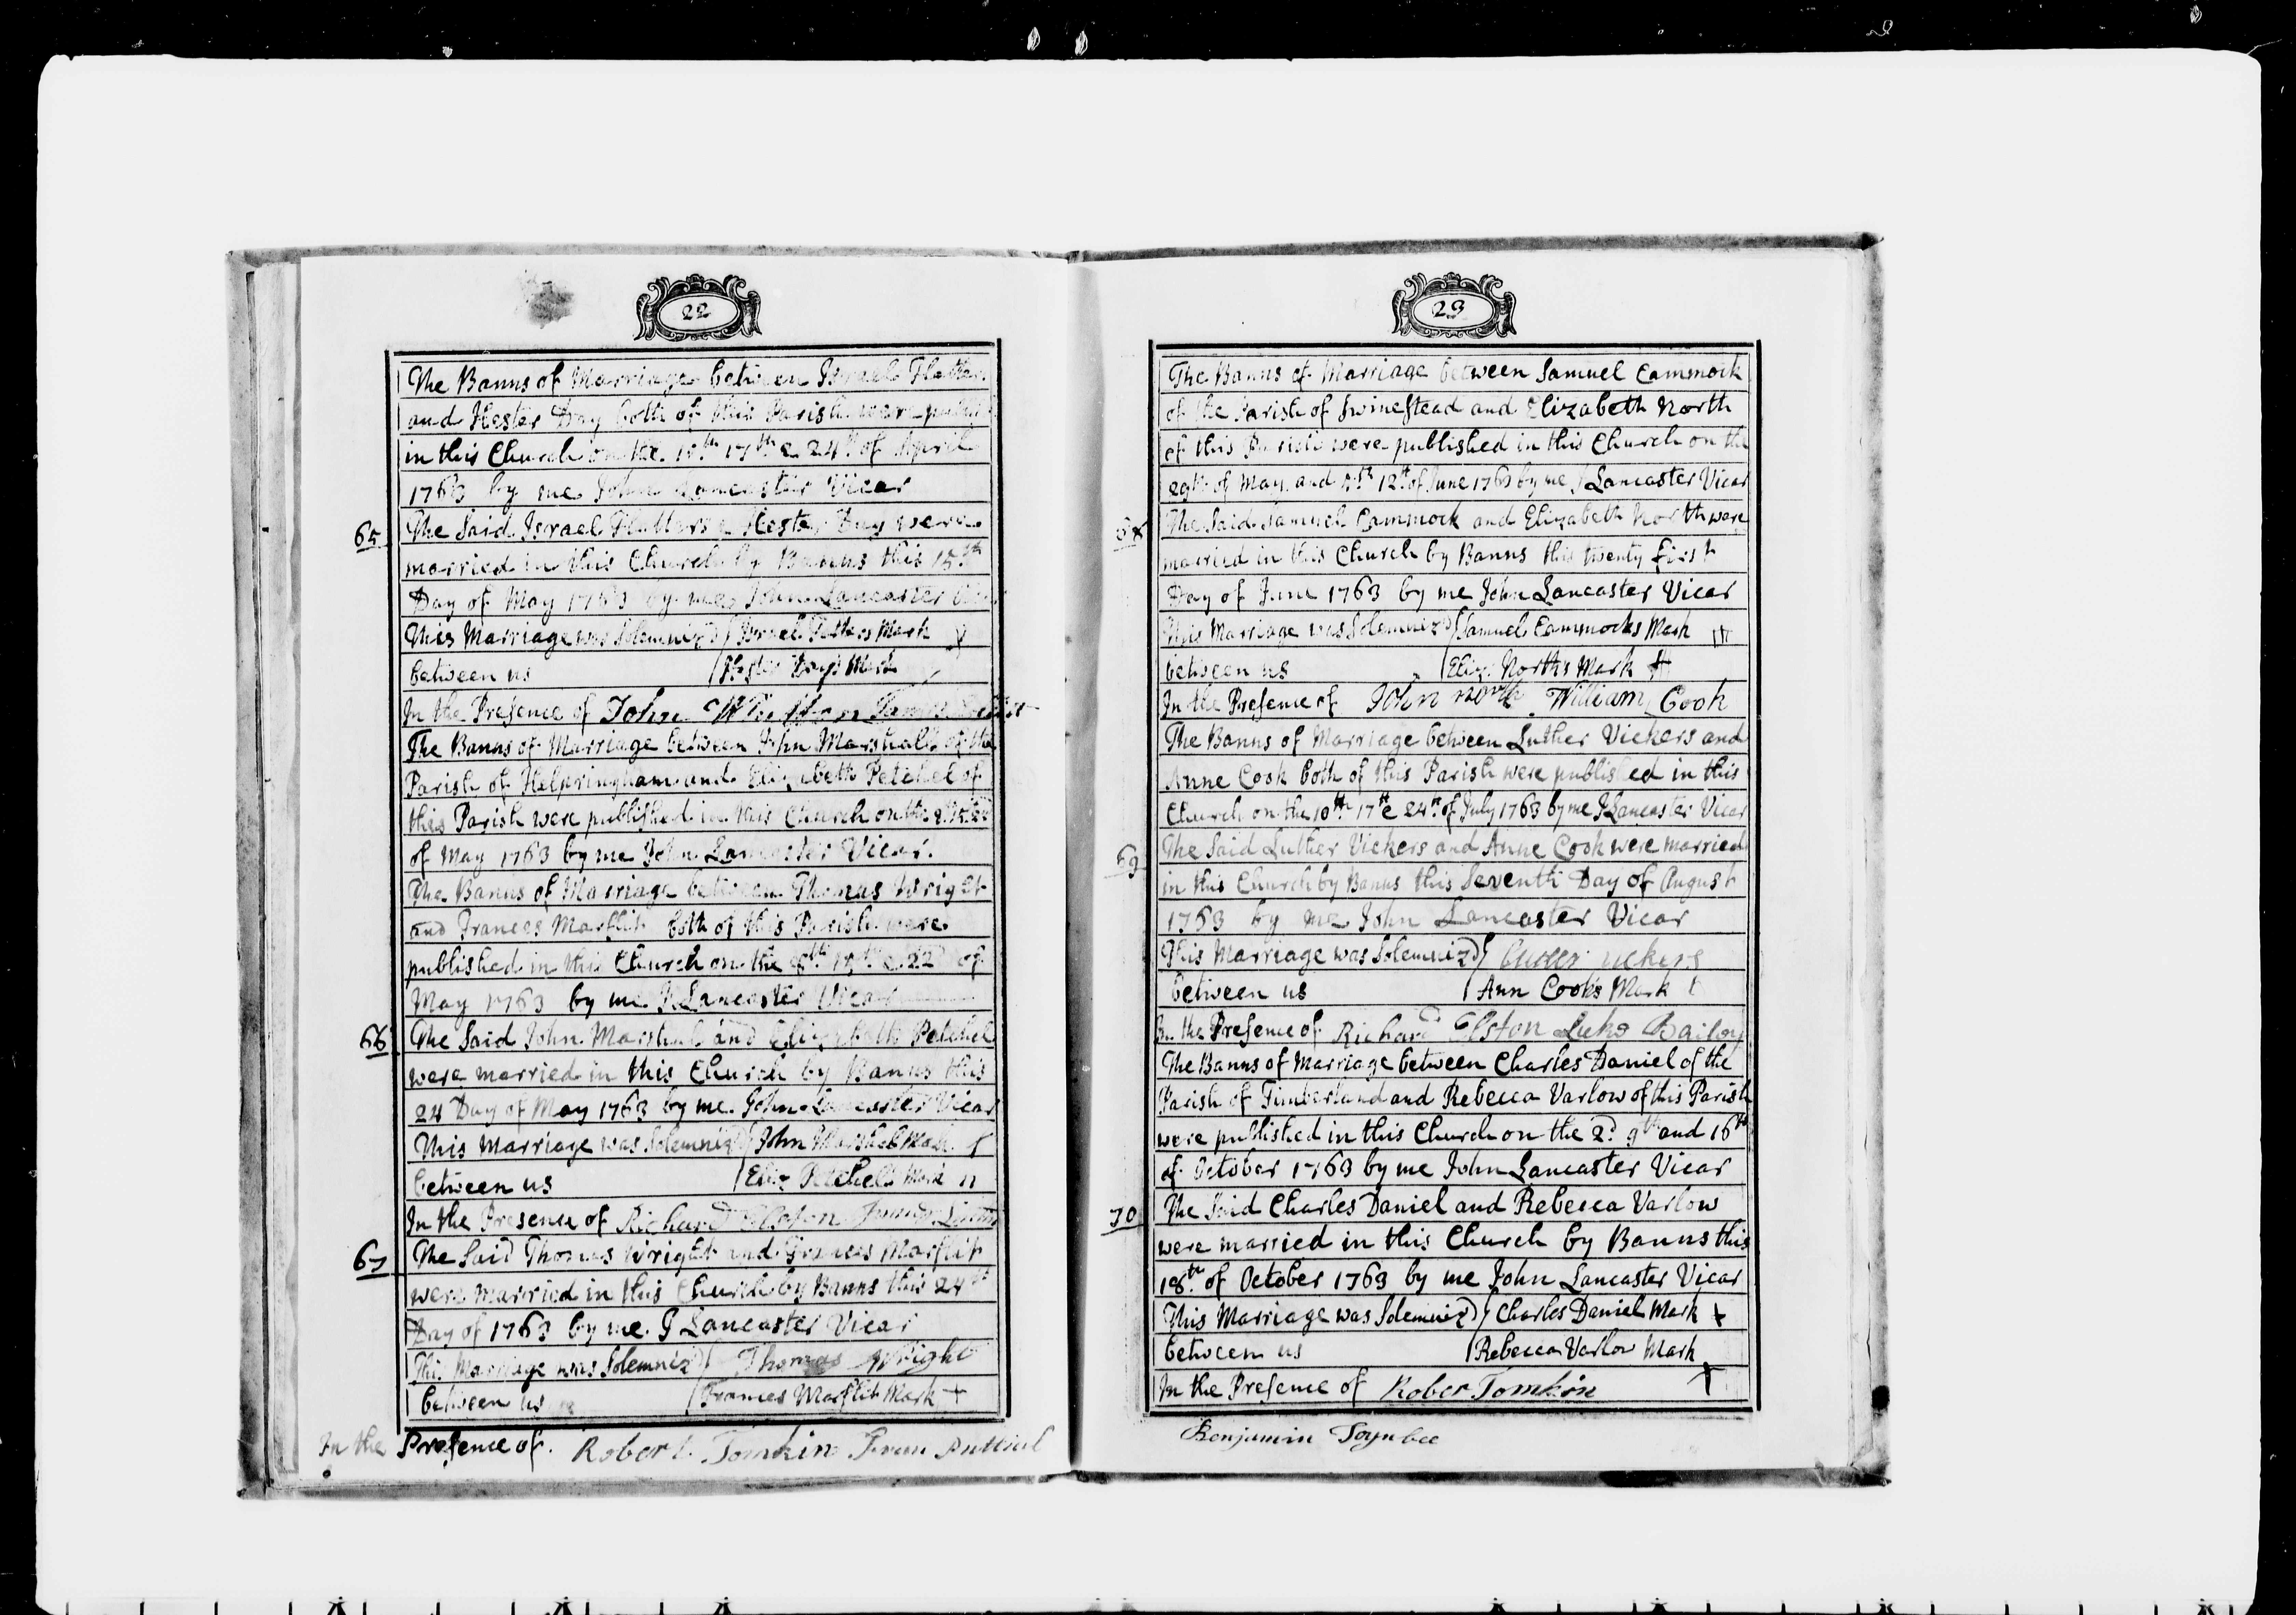 22
The Banns of Marriage between Israel
and Hester Day both of this Parish were
in this Church on the 17th & 24th of April
1763 by me John Lancaster Vicar
65
The Said Israel & Hester Day were
married in this Church by Banns this 15th
Day of May 1763 by me John Lancaster
This Marriage was Solemniz'd Israel Mark
between us Hester Days Mark
In the Presence of John
The Banns of Marriage between John Marshall of the
Parish of Helpringham and Elizabeth Petchel of
this Parish were published in this Church on the
of May 1763 by me John Lancaster Vicar.
The Banns of Marriage between Thomas Wright
and Frances Marflit both of this Parish were
published in this Church on the 8th 15th & 22d of
May 1763 by me J Lancaster Vicar
66
The Said John Marshal and Elizabeth Petchel
were married in this Church by Banns this
24 Day of May 1763 by me John Lancaster Vicar
This Marriage was Solemniz'd John Marshal Mark
between us Eliz Petchels Mark
In the Presence of Richard Elston
67
The Said Thomas Wright and Frances Marflit
were married in this Church by Banns this 24th
Day of 1763 by me J Lancaster Vicar
This Marriage was Solemniz'd Thomas Wright
between us Frances Marflit Mark +
In the Presence of Robert Tomkin
23
The Banns of Marriage between Samuel Cammock
of the Parish of Swinestead and Elizabeth North
of this Parish were published in this Church on the
29th of May and 5th 12th of June 1763 by me J Lancaster Vicar
68
The Said Samuel Cammock and Elizabeth North were
married in this Church by Banns this twenty first
Day of June 1763 by me John Lancaster Vicar
This Marriage was Solemniz'd Samuel Cammocks Mark
between us Eliz: Norths Mark
In the Presence of John North William Cook
The Banns of Marriage between Luther Vickers and
Anne Cook both of this Parish were published in this
Church on the 10th 17th & 24th of July 1763 by me J Lancaster Vicar
69
The Said Luther Vickers and Anne Cook were married
in this Church by Banns this Seventh Day of August
1763 by me John Lancaster Vicar
This Marriage was Solemniz'd
between us Ann Cooks Mark
In the Presence of Richard Elston Luke Bailey
The Banns of Marriage between Charles Daniel of the
Parish of Timberland and Rebecca Varlow of this Parish
were published in this Church on the 2d 9th and 16th
of October 1763 by me John Lancaster Vicar
70
The Said Charles Daniel and Rebecca Varlow
were married in this Church by Banns this
18th of October 1763 by me John Lancaster Vicar
This Marriage was Solemniz'd Charles Daniel Mark +
between us Rebecca Varlow Mark
In the Presence of Rober Tomkin +
Benjamin Toynbee